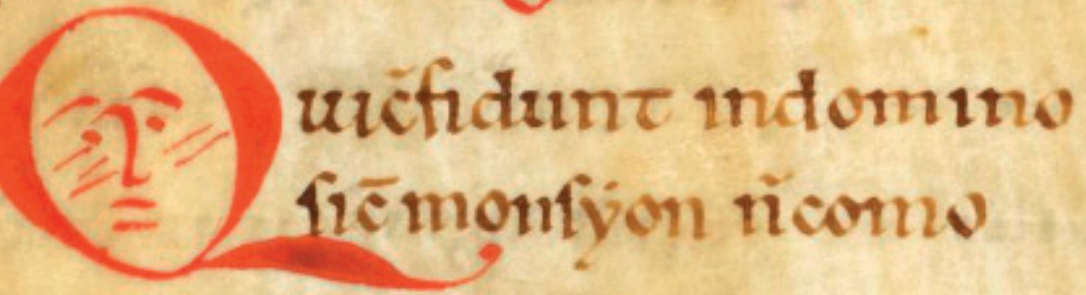 Quic̄fidunt indomino
sic̄ monsẏon n̄ como